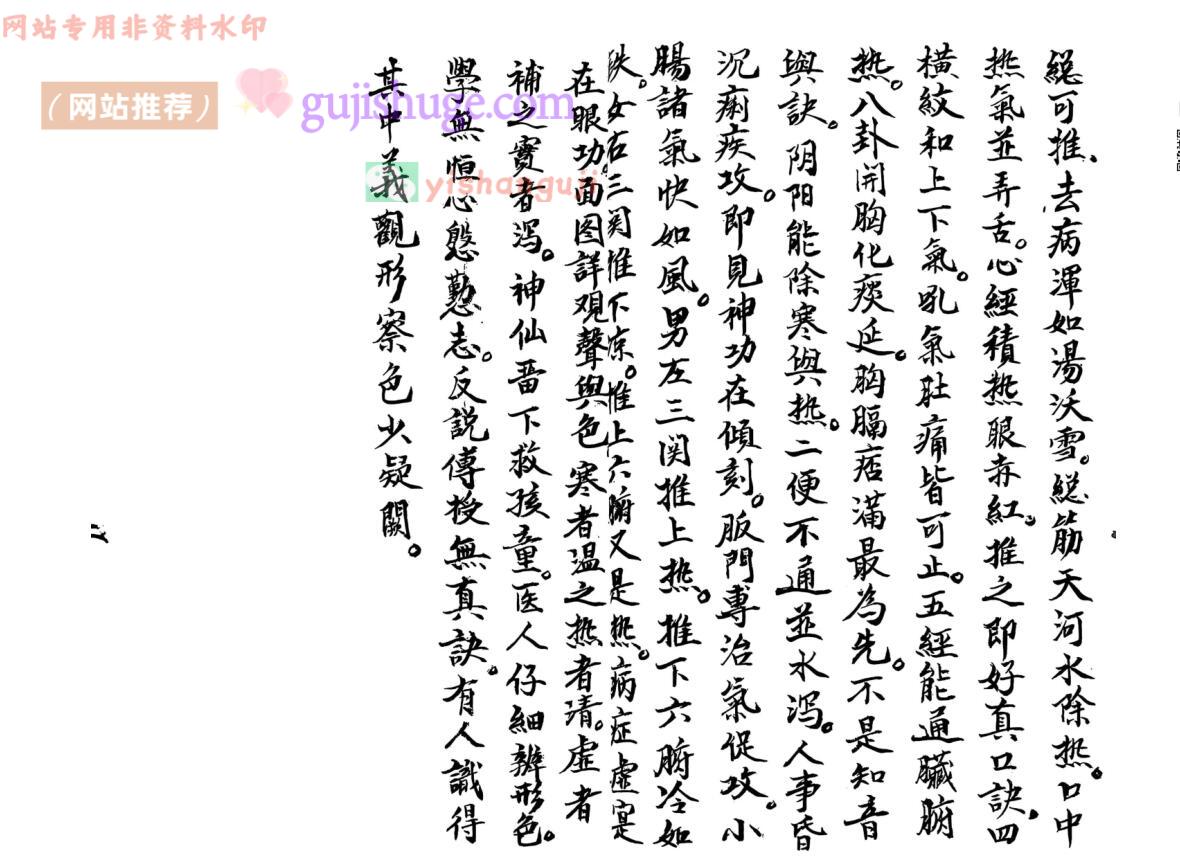 网站专用非资料水印
(网站推荐)
gujishuge.com
yishanguji
綛可推、去病渾如湯沃雪。綛筋天河水除热。口中
热氣並弄舌。心經積热眼赤紅。推之即好真口訣。四
橫紋和上下氣。吼氣肚痛皆可止。五經能通臟腑
热。八卦開胸化痰延。胸膈痞滿最為先。不是知音
與訣。阴阳能除寒與热。二便不通並水泻。人事昏
沉痢疾攻。即見神功在傾刻。版門專治氣促攻。小
腸諸氣快如風。男左三関推上热。推下六腑冷如
鉄。女右三関推下凉。推上六腑又是热。病症虛寔
在眼功。面图詳观聲與色寒者温之热者清。虛者
補之實者泻。神仙畱下救孩童。医人仔細辨形色。
學無恒心慇懃志。反說傳授無真訣。有人識得
其中義觀形察色少疑闕。